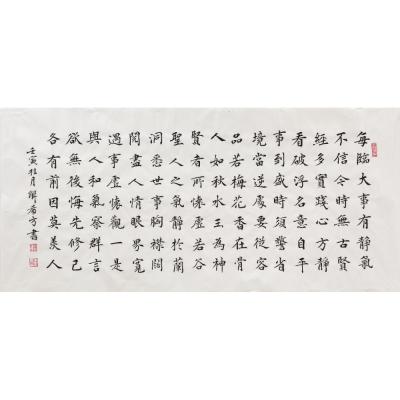 每臨大事有靜氣
不信今時無古賢
經多實踐心方靜
看破浮名意自平
事到盛時須警省
境當逆處要從容
品若梅花香在骨
人如秋水玉為神
賢者所懷虛若谷
聖人之氣靜於蘭
洞悉世事胸襟闊
閱盡人情眼界寬
遇事虛懷觀一是
與人和氣察群言
欲無後悔先修己
各有前因莫羨人
壬寅桂月希方書